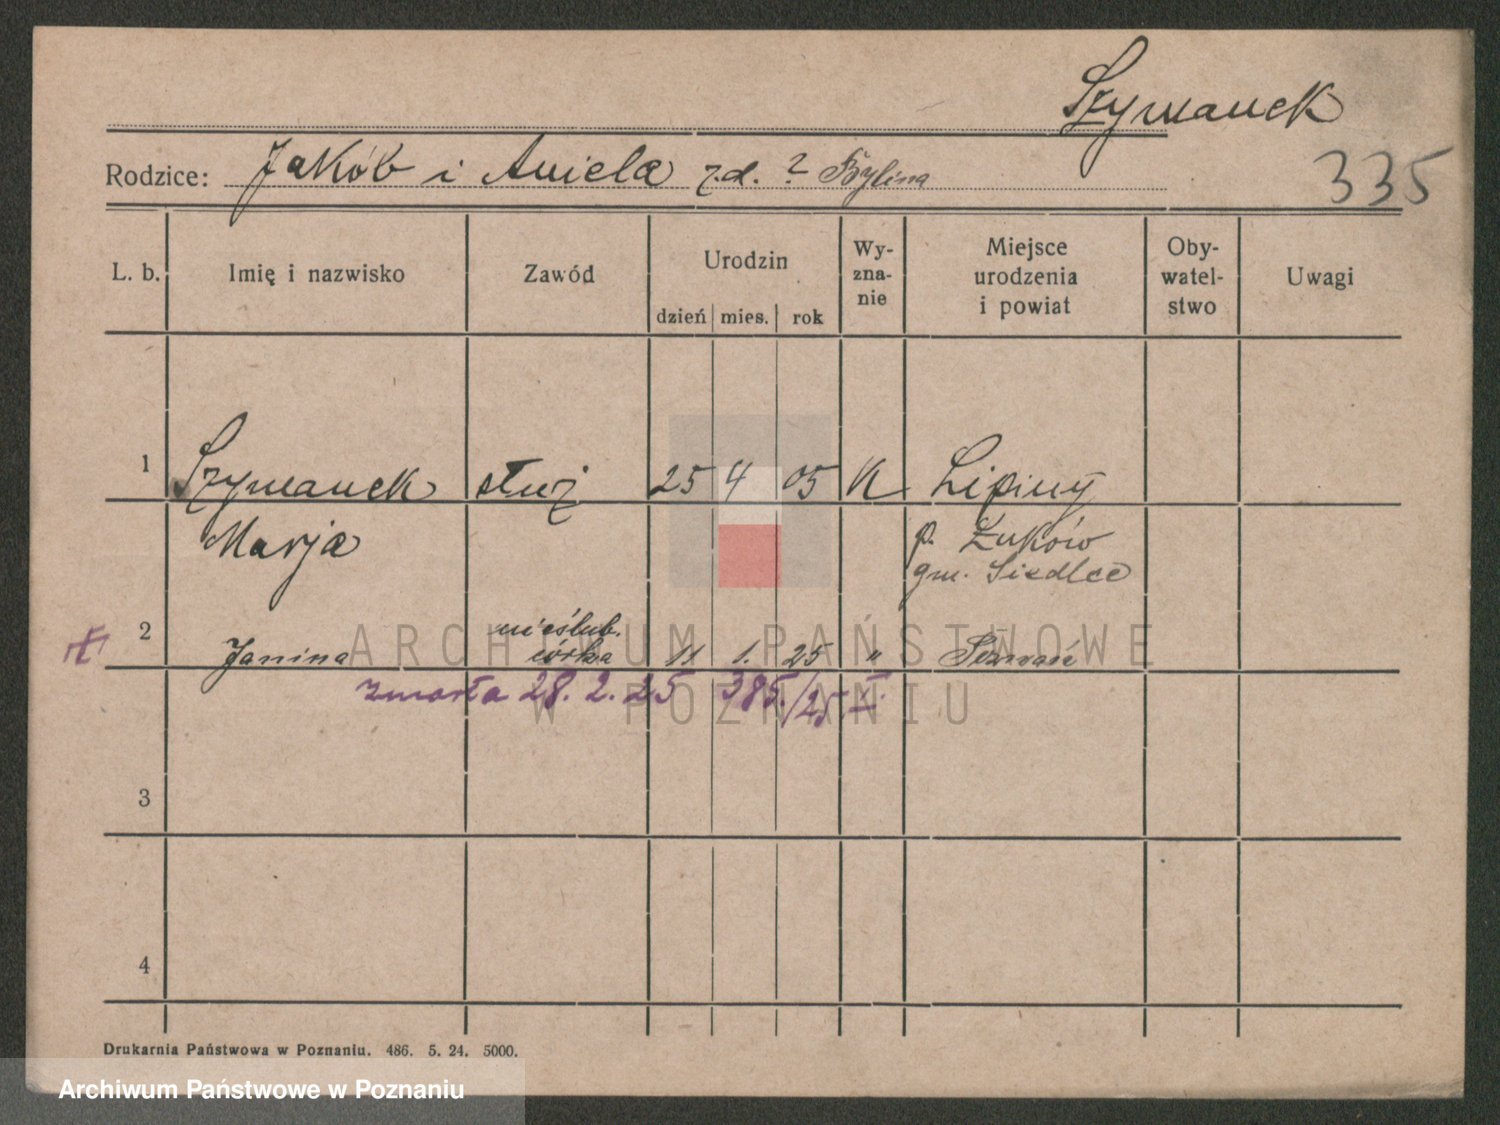 Szymanek
Rodzice: Jakób i Aniela z.d. ? Bylina
335
L. b. Imię i nazwisko Zawód Urodzin dzień mies. rok Wy-zna-nie Miejsce urodzenia i powiat Oby-watel-stwo Uwagi
1 Szymanek służ 25 4 05 K Lipiny
Marja p. Łuków
gm. Siedlce
nieślub.
2 Janina córka 11 1. 25 " Poznań
zmarła 28. 2. 25 385./25 II.
3
4
ARCHIWUM PAŃSTWOWE
W POZNANIU
Drukarnia Państwowa w Poznaniu. 486. 5. 24. 5000.
Archiwum Państwowe w Poznaniu